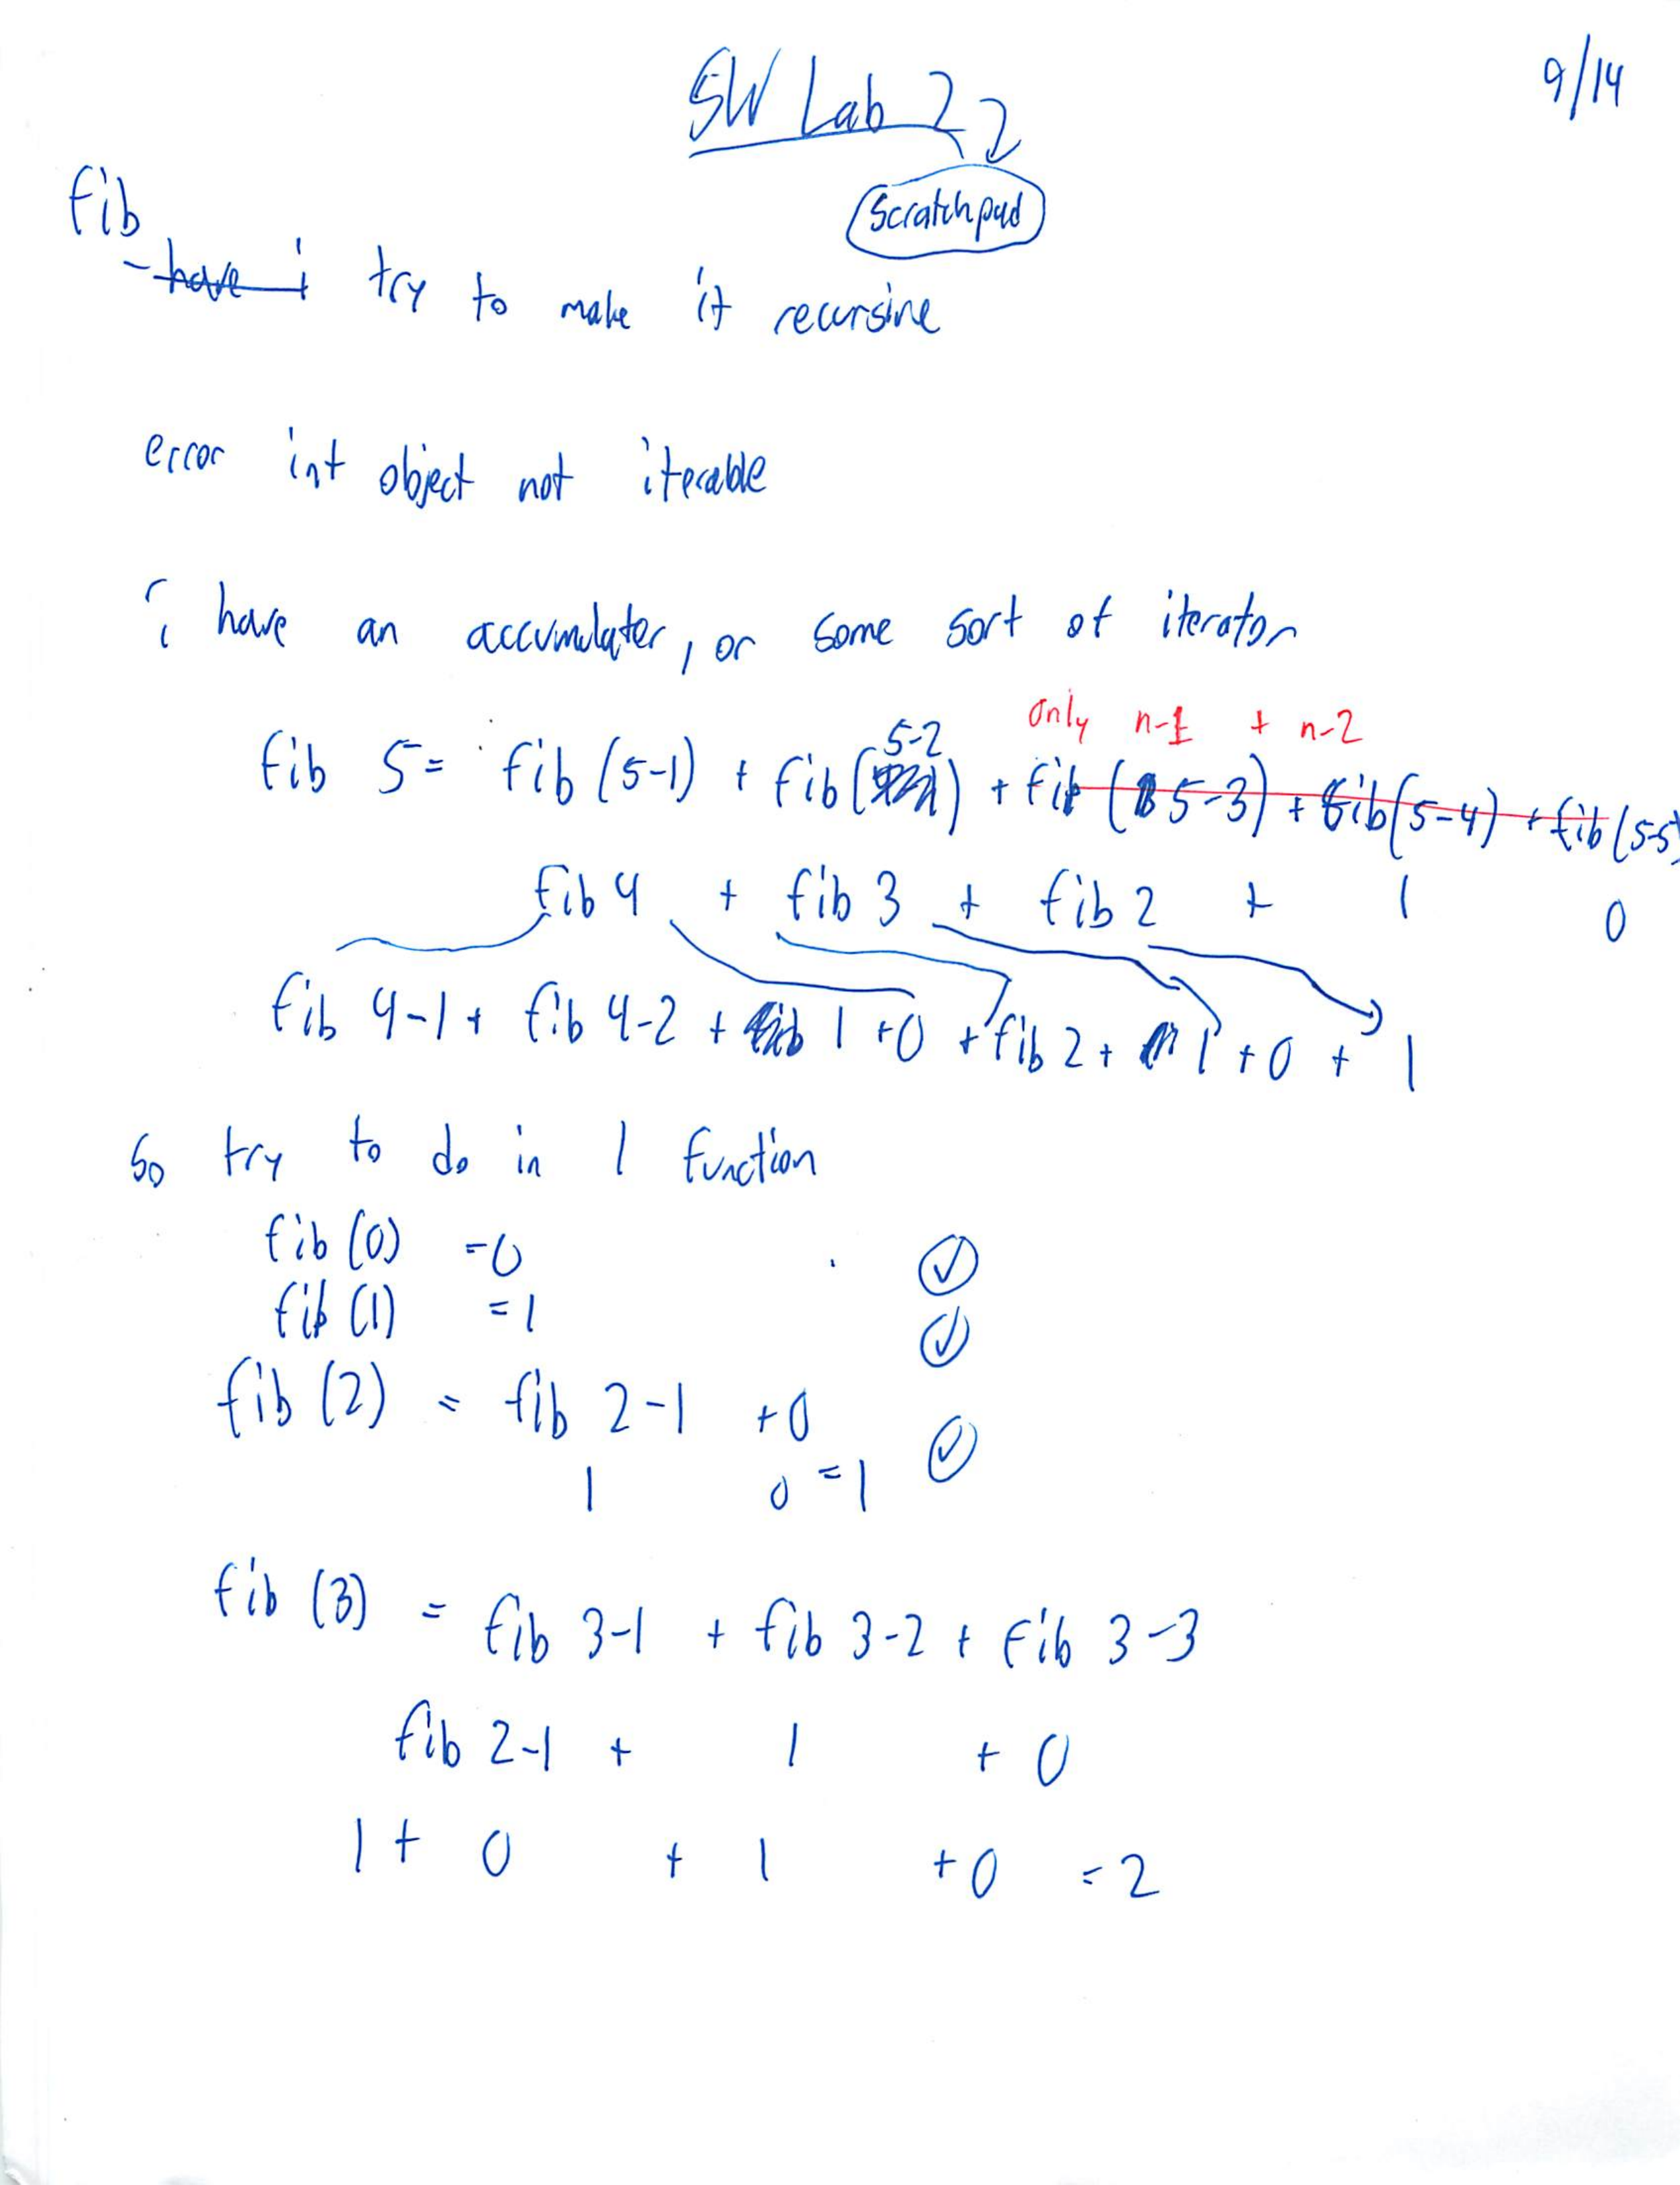 SW Lab 2 2
9/14
Scratchpad
fib
- have i try to make it recursive
error int object not iterable
i have an accumulater, or some sort of iterator
only n-1 + n-2
5-2
fib 5 = fib (5-1) + fib( ) + fib (5-3) + fib(5-4) + fib(5-5)
fib 4 + fib 3 + fib 2 + 1 0
fib 4-1 + fib 4-2 + 1 +0 + fib 2 + 1 +0 + 1
So try to do in 1 function
fib (0) =0 ✓
fib (1) =1 ✓
fib (2) = fib 2-1 +0 ✓
1 0 =1
fib (3) = fib 3-1 + fib 3-2 + fib 3-3
fib 2-1 + 1 + 0
1 + 0 + 1 +0 =2